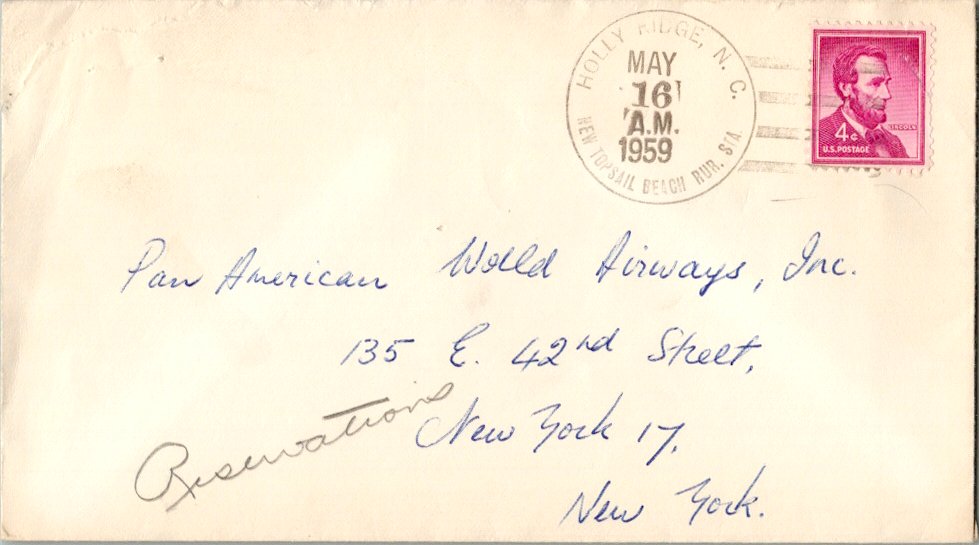 HOLLY RIDGE, N. C.
MAY
16
A.M.
1959
NEW TOPSAIL BEACH RUR. STA.
LINCOLN
4¢
U.S. POSTAGE
Pan American World Airways, Inc.
135 E. 42nd Street,
Reservations
New York 17,
New York.